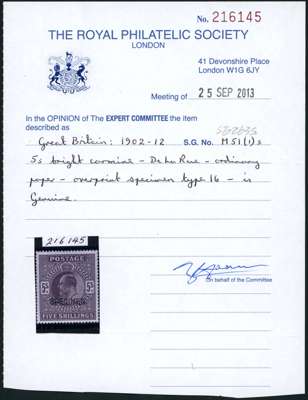 No. 216145
THE ROYAL PHILATELIC SOCIETY
LONDON
41 Devonshire Place
London W1G 6JY
Meeting of 25 SEP 2013
In the OPINION of The EXPERT COMMITTEE the item
described as
Great Britain: 1902-12 S.G. No. M51(1)s
5s bright carmine - De La Rue - ordinary
paper - overprint specimen type 16 - is
Genuine.
216145
POSTAGE
SPECIMEN
FIVE SHILLINGS
on behalf of the Committee